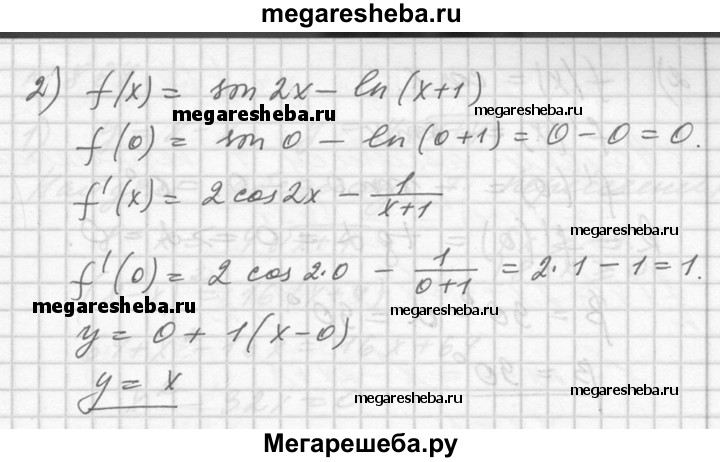 megaresheba.ru
2) f(x) = sin 2x - ln(x+1)
megaresheba.ru megaresheba.ru
f(0) = sin 0 - ln(0+1) = 0 - 0 = 0.
f'(x) = 2 cos 2x - 1/(x+1)
megaresheba.ru
f'(0) = 2 cos 2·0 - 1/(0+1) = 2·1 - 1 = 1.
megaresheba.ru megaresheba.ru
y = 0 + 1(x-0)
megaresheba.ru
y = x
megaresheba.ru
Мегарешеба.ру